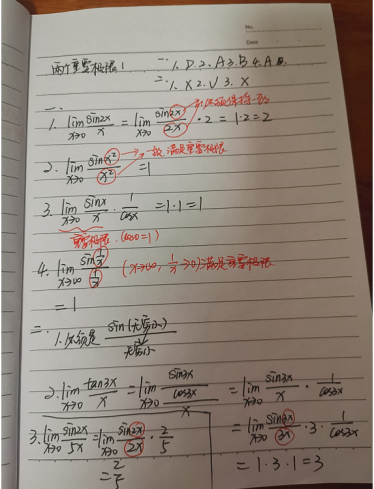 No.
Date
两个重要极限1
一. 1. D 2. A 3. B 4. A
二. 1. X 2. √ 3. X
一、
1. lim x→0 sin2x/x = lim x→0 sin2x/2x · 2 = 1·2 = 2
2. lim x→0 sinx²/x² = 1 一致,满足重要极限
3. lim x→0 sinx/x · 1/cosx = 1·1 = 1
重要极限 (cos0=1)
4. lim x→∞ sin 1/x / 1/x (x→∞, 1/x→0) 满足重要极限
= 1
二、
1. 必须是 sin(无穷小)/无穷小
2. lim x→0 tan3x/x = lim x→0 sin3x/cos3x / x = lim x→0 sin3x/x · 1/cos3x
= lim x→0 sin3x/3x · 3 · 1/cos3x
= 1·3·1 = 3
3. lim x→0 sin2x/5x = lim x→0 sin2x/2x · 2/5
= 2/5